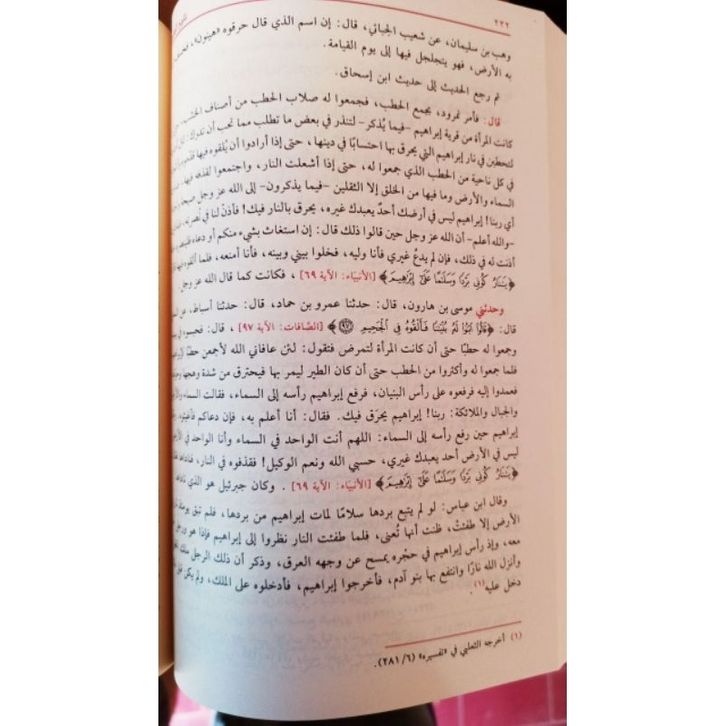 ٢٢٢
وهب بن سليمان، عن شعيب الجبائي، قال: إن اسم الذي قال حرقوه «هينون»،
به الأرض، فهو يتجلجل فيها إلى يوم القيامة.
ثم رجع الحديث إلى حديث ابن إسحاق.
قال: فأمر نمرود، بجمع الحطب، فجمعوا له صلاب الحطب من أصناف
كانت المرأة من قرية إبراهيم -فيما يُذكر- لتنذر في بعض ما تطلب مما تحب أن تدرك:
لتحطبن في نار إبراهيم التي يحرق بها احتسابًا في دينها، حتى إذا أرادوا أن يُلقوه فيها
في كل ناحية من الحطب الذي جمعوا له، حتى إذا أشعلت النار، واجتمعوا لقذفه فيها،
السماء والأرض وما فيها من الخلق إلا الثقلين -فيما يذكرون- إلى الله عز وجل صيحة
أي ربنا! إبراهيم ليس في أرضك أحدٌ يعبدك غيره، يحرق بالنار فيك! فأذنْ لنا في نُصرته،
-والله أعلم- أن الله عز وجل حين قالوا ذلك قال: إن استغاث بشيء منكم أو دعاه
أذنت له في ذلك، فإن لم يدعُ غيري فأنا وليه، فخلوا بيني وبينه، فأنا أمنعه، فلما ألقوه
﴿يَنَارُ كُونِى بَرْدًا وَسَلَمًا عَلَىٰٓ إِبْرَهِيمَ﴾ [الأنبيَاء: الآية ٦٩]، فكانت كما قال الله عز وجل
وحدثني موسى بن هارون، قال: حدثنا عمرو بن حماد، قال: حدثنا أسباط، عن
قال: ﴿قَالُوا ٱبْنُوا لَهُۥ بُنْيَنًا فَأَلْقُوهُ فِى ٱلْجَحِيمِ ٩٧﴾ [الصَّافات: الآية ٩٧]، قال: فحبسوه في
وجمعوا له حطبًا حتى أن كانت المرأة لتمرض فتقول: لئن عافاني الله لأجمعن حطبًا
فلما جمعوا له وأكثروا من الحطب حتى أن كان الطير ليمر بها فيحترق من شدة وهجها
فعمدوا إليه فرفعوه على رأس البنيان، فرفع إبراهيم رأسه إلى السماء، فقالت السماء
والجبال والملائكة: ربنا! إبراهيم يحرّق فيك. فقال: أنا أعلم به، فإن دعاكم
إبراهيم حين رفع رأسه إلى السماء: اللهم أنت الواحد في السماء وأنا الواحد في
ليس في الأرض أحد يعبدك غيري، حسبي الله ونعم الوكيل! فقذفوه في النار،
﴿يَنَارُ كُونِى بَرْدًا وَسَلَمًا عَلَىٰٓ إِبْرَهِيمَ﴾ [الأنبيَاء: الآية ٦٩]. وكان جبرئيل هو الذي
وقال ابن عباس: لو لم يتبع بردها سلامًا لمات إبراهيم من بردها، فلم تبق يومئذ
الأرض إلا طفئتْ، ظنت أنها تُعنى، فلما طفئت النار نظروا إلى إبراهيم فإذا هو
معه، وإذ رأس إبراهيم في حجْره يمسح عن وجهه العرق، وذكر أن ذلك الرجل
وأنزل الله نارًا وانتفع بها بنو آدم، فأخرجوا إبراهيم، فأدخلوه على الملك، ولم يكن قبل
دخل عليه(١).
(١) أخرجه الثعلبي في «تفسيره» (٦/ ٢٨١).